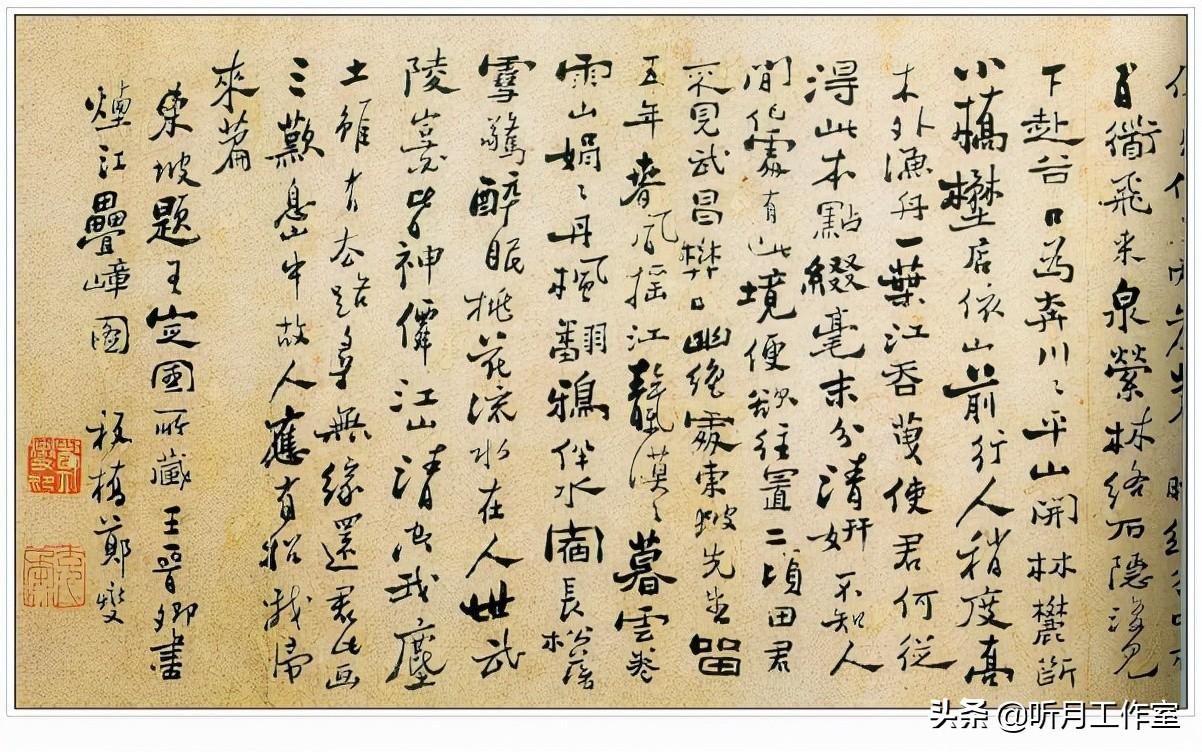 百衟飛来泉縈林絡石隱復見
下赴谷口為奔川〻平山開林麓斷
小橋壄店依山前行人稍度高
木外漁舟一葉江吞使君何従
淂此本點綴毫末分清妍不知人
間何處有此境便欲往置二頃田君
不見武昌樊口幽絶處東坡先生留
五年春風摇江漠〻暮雲卷
雨山娟〻丹楓翻鴉伴水宿長松落
雪驚醉眠桃花流水在人世武
陵豈皆神僊江山清空我塵
土雖有去路尋無緣還君此画
三歎息山中故人應有招我歸
來篇
東坡題王定國所藏王晉卿畫
煙江疊嶂圖 板橋鄭燮
头条 @听月工作室